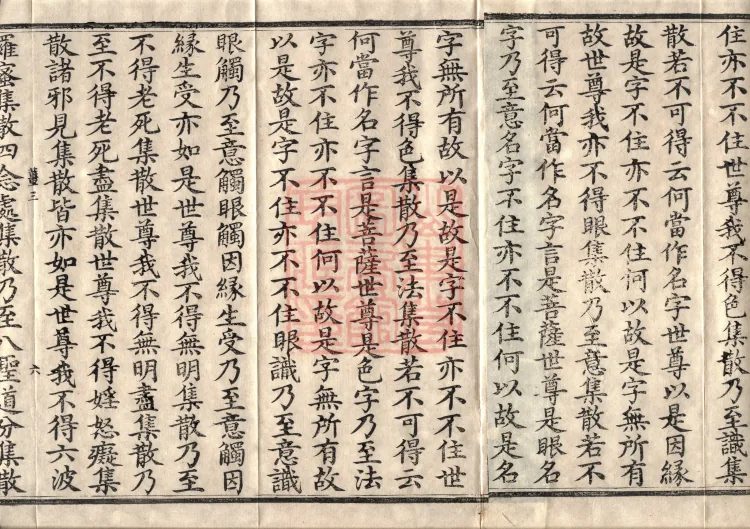 住亦不不住世尊我不得色集散乃至識集
散若不可得云何當作名字世尊以是因緣
故是字不住亦不不住何以故是字無所有
故世尊我亦不得眼集散乃至意集散若不
可得云何當作名字言是菩薩世尊是眼名
字乃至意名字不住亦不不住何以故是名
字無所有故以是故是字不住亦不不住世
尊我不得色集散乃至法集散若不可得云
何當作名字言是菩薩世尊是色字乃至法
字亦不住亦不不住何以故是字無所有故
以是故是字不住亦不不住眼識乃至意識
眼觸乃至意觸眼觸因緣生受乃至意觸因
緣生受亦如是世尊我不得無明集散乃至
不得老死集散世尊我不得無明盡集散乃
至不得老死盡集散世尊我不得婬怒癡集
散諸邪見集散皆亦如是世尊我不得六波
薑三 六
羅蜜集散四念處集散乃至八聖道分集散